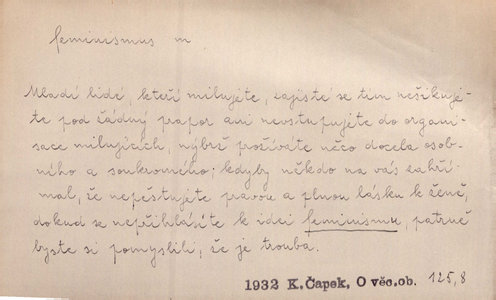 feminismus m
Mladí lidé, kteří milujete, zajisté se tím nešikuje-
te pod žádný prapor ani nevstupujete do organi-
sace milujících, nýbrž prožíváte něco docela osob-
ního a soukromého; kdyby někdo na vás zahří-
mal, že nepěstujete pravou a plnou lásku k ženě,
dokud se nepřihlásíte k idei feminismu, patrně
byste si pomyslili, že je trouba.
1932 K.Čapek, O věc.ob. 125,8